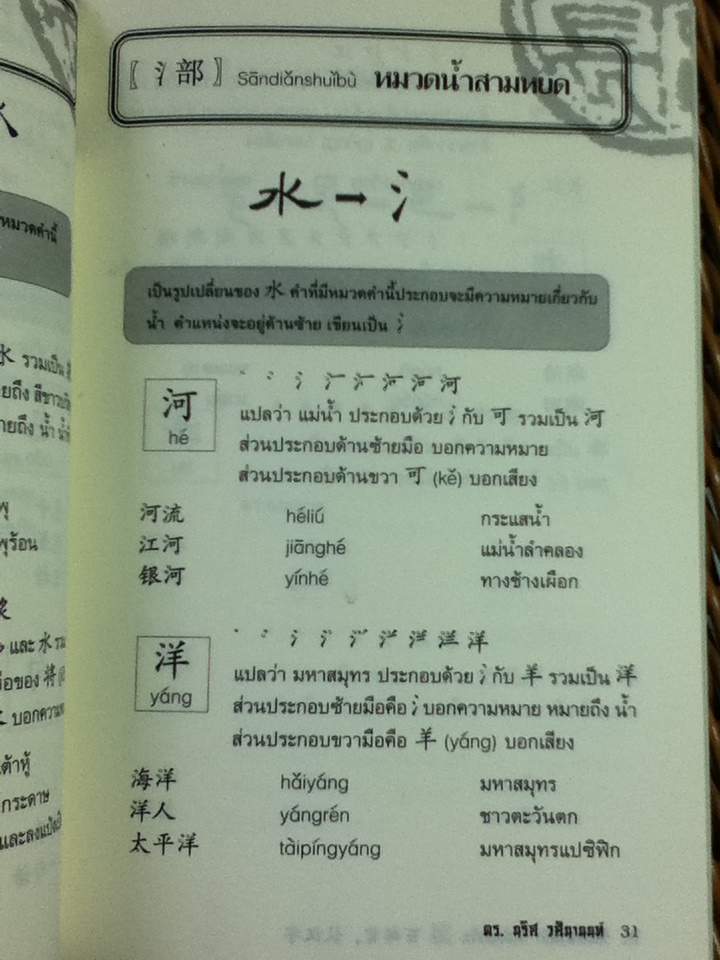 〖氵部〗 Sāndiǎnshuǐbù หมวดน้ำสามหยด
水→氵
เป็นรูปเปลี่ยนของ 水 คำที่มีหมวดคำนี้ประกอบจะมีความหมายเกี่ยวกับ
น้ำ ตำแหน่งจะอยู่ด้านซ้าย เขียนเป็น 氵
河
hé
แปลว่า แม่น้ำ ประกอบด้วย 氵 กับ 可 รวมเป็น 河
ส่วนประกอบด้านซ้ายมือ บอกความหมาย
ส่วนประกอบด้านขวา 可 (kě) บอกเสียง
河流 héliú กระแสน้ำ
江河 jiānghé แม่น้ำลำคลอง
银河 yínhé ทางช้างเผือก
洋
yáng
แปลว่า มหาสมุทร ประกอบด้วย 氵 กับ 羊 รวมเป็น 洋
ส่วนประกอบซ้ายมือคือ 氵 บอกความหมาย หมายถึง น้ำ
ส่วนประกอบขวามือคือ 羊 (yáng) บอกเสียง
海洋 hǎiyáng มหาสมุทร
洋人 yángrén ชาวตะวันตก
太平洋 tàipíngyáng มหาสมุทรแปซิฟิก
ดร. 31